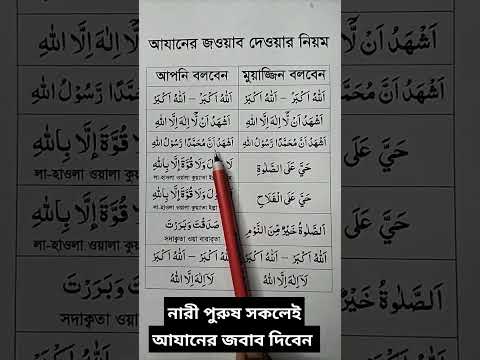 আযানের জওয়াব দেওয়ার নিয়ম
আপনি বলবেন মুয়াজ্জিন বলবেন
اَللّٰهُ اَكْبَرُ – اَللّٰهُ اَكْبَرُ اَللّٰهُ اَكْبَرُ – اَللّٰهُ اَكْبَرُ
اَشْهَدُ اَنْ لَّا اِلٰهَ اِلَّا اللّٰهِ اَشْهَدُ اَنْ لَّا اِلٰهَ اِلَّا اللّٰهِ
اَشْهَدُ اَنَّ مُحَمَّدًا رَّسُوْلُ اللّٰهِ اَشْهَدُ اَنَّ مُحَمَّدًا رَّسُوْلُ اللّٰهِ
وَلَا قُوَّةَ اِلَّا بِاللّٰهِ حَيَّ عَلَى الصَّلٰوةِ
লা-হাওলা ওয়ালা কুয়্যাতা
وَلَا قُوَّةَ اِلَّا بِاللّٰهِ حَيَّ عَلَى الْفَلَاحِ
লা-হাওলা ওয়ালা কুয়্যাতা
صَدَقْتَ وَبَرَرْتَ اَلصَّلٰوةُ خَيْرٌ مِّنَ النَّوْمِ
সদাকৃতা ওয়া বারাকৃতা
اَللّٰهُ اَكْبَرُ – اَللّٰهُ اَكْبَرُ اَللّٰهُ اَكْبَرُ – اَللّٰهُ اَكْبَرُ
لَا اِلٰهَ اِلَّا اللّٰهُ لَا اِلٰهَ اِلَّا اللّٰهُ
নারী পুরুষ সকলেই
আযানের জবাব দিবেন